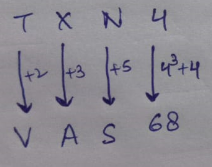 T X N 4
+2 +3 +5 4³+4
V A S 68